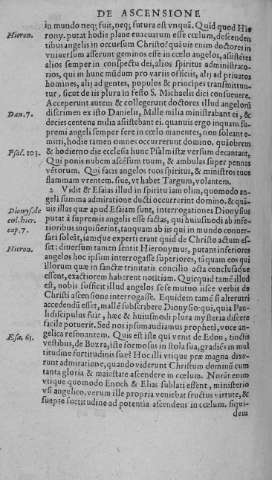 DE ASCENSIONE
in mundo neq; fuit, neq; futura est vnquã. Quid quod Hie
Hieron. rony. putat hodie plane euacuatum esse cœlum, descenden
tibus angelis in occursum Christo? quâ uis enim doctores in
vniuersum asserunt geminos esse in cœlo angelos, assistētes
alios semper in conspectu dei, alios spiritus administrato-
rios, qui in hunc mūdum pro variis officiis, alij ad priuatos
homines, alij ad gentes, populos & principes transmittun-
tur, sicut de iis plura in festo S. Michaelis dici consueuere.
Acceperunt autem & collegerunt doctores illud angelorū
Dan. 7. discrimen ex isto Danielis, Mille milia ministrabant ei, &
decies centena milia assistebant ei. quanuis ergo inquam su-
premi angeli semper fere in cœlo manentes, non soleant e-
mitti, hodie tamen omnes occurrerunt domino, quiob rem
Psal. 103. & hodierno die ecclesia hunc Psalmiste versum decantet.
Qui ponis nubem ascēsum tuum, & ambulas super pennas
vētorum. Qui facis angelos tuos spiritus, & ministros tuos
flammam vrentem. siue, vt habet Targum, volantem.
2 Vidit & Esaias illud in spiritu iam olim, quomodo an-
geli summa admiratione ducti occurrerint domino. & quâ-
Dionys. de uis illas quæ apud Esaiam sunt, interrogationes Dionysius
cœl. hier. putat à supremis angelis esse factas, qui huiusmodi ab infe-
cap. 7. rioribus inquisierint, tanquam ab iis qui in mundo conuer-
sari solēt, iamque experti erant quid de Christo actum es-
Hieron. set: diuersum tamen sentit Hieronymus, putant inferiores
angelos hoc ipsum interrogasse superiores, tāquam eos qui
illorum quæ in sanctæ trinitatis concilio acta conclusaque
essent, exactiorem haberent notitiam. Quicquid tamē illud
est, nobis sufficit illud angelos sese mutuo uisse verbis de
Christi ascensione interrogasse. Equidem tamē si alterutri
accedendū esset, mallē subscribere Dionysio: qui, quia Pau-
li discipulus fuit, hæc & huiusmodi plura mysteria discere
facile potuerit. Sed nos ipsum audiamus prophetā, voce an-
Esa. 63. gelica resonantem. Quis est iste qui venit de Edon, tinctis
vestibus, de Bozra, iste formosus in stola sua, gradiēs in mul
titudine fortitudinis suæ? Hoc illi vtique præ magna dixe-
runt admiratione, quando viderunt Christum dominū cum
tanta gloria & maiestate ascendere in cœlum. Norāt enim
vtique quomodo Enoch & Elias sublati essent, ministerio
vsi angelico. verum ille propria veniebat fretus virtute, &
suapte fortitudine ad potentia ascendens in cœlum. siqui-
dem